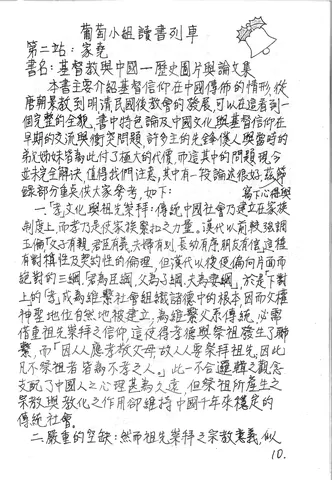 葡萄小組讀書列車
第二站：家堯
書名：基督教與中國一歷史圖片與論文集
本書主要介紹基督信仰在中國傳佈的情形，從
唐朝景教到明清民國後教會的發展，可以在這看到一
個完整的全貌，書中特色論及中國文化與基督信仰在
早期的交流與衝突問題，許多主的先鋒僕人與當時的
弟兄姊妹皆為此付了極大的代價，而這其中的問題現今
並未完全解決，值得我們注意，其中有一段論述很好，茲節
錄部分重矣供大家參考，如下：
寫下心得與
一、「孝文化與祖先崇拜：傳統中國社會乃建立在家族
制度上，而孝乃是使家族累社之力量。漢代以前較強調
五倫「父子有親，君臣有義，夫婦有別，長幼有序，朋友有信，這種
有對稱性及契約性的倫理，但漢代以後使偏向片面而
絕對的三綱「君為臣綱，父為子綱，夫為妻綱」，於是「下對
上」的「孝」，成為維繫社會組織諸德中的根本，因而父權
神聖地位自然地被建立，為維繫父系傳統，必需
借重祖先崇拜之信仰，這使得孝德與祭祖發生了聯
繫，而「因人人應孝敬父母，故人人要祭拜祖先，因此
凡不祭祖者皆為不孝之人」，此一不合邏輯之觀念
支配了中國人之心理甚為久遠，但祭祖所產生之
宗教與教化之作用卻維持中國千年來穩定的
傳統社會。
二、嚴重的空缺：然而祖先崇拜之宗教意義，似
10.